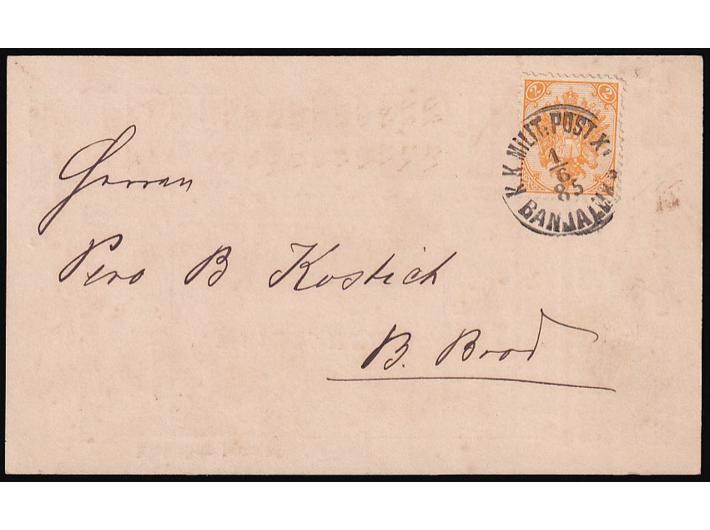 2 2
K.K. MILIT: POST X
1/6
85
BANJALUKA
Herren
Pero B Kostich
B. Brod